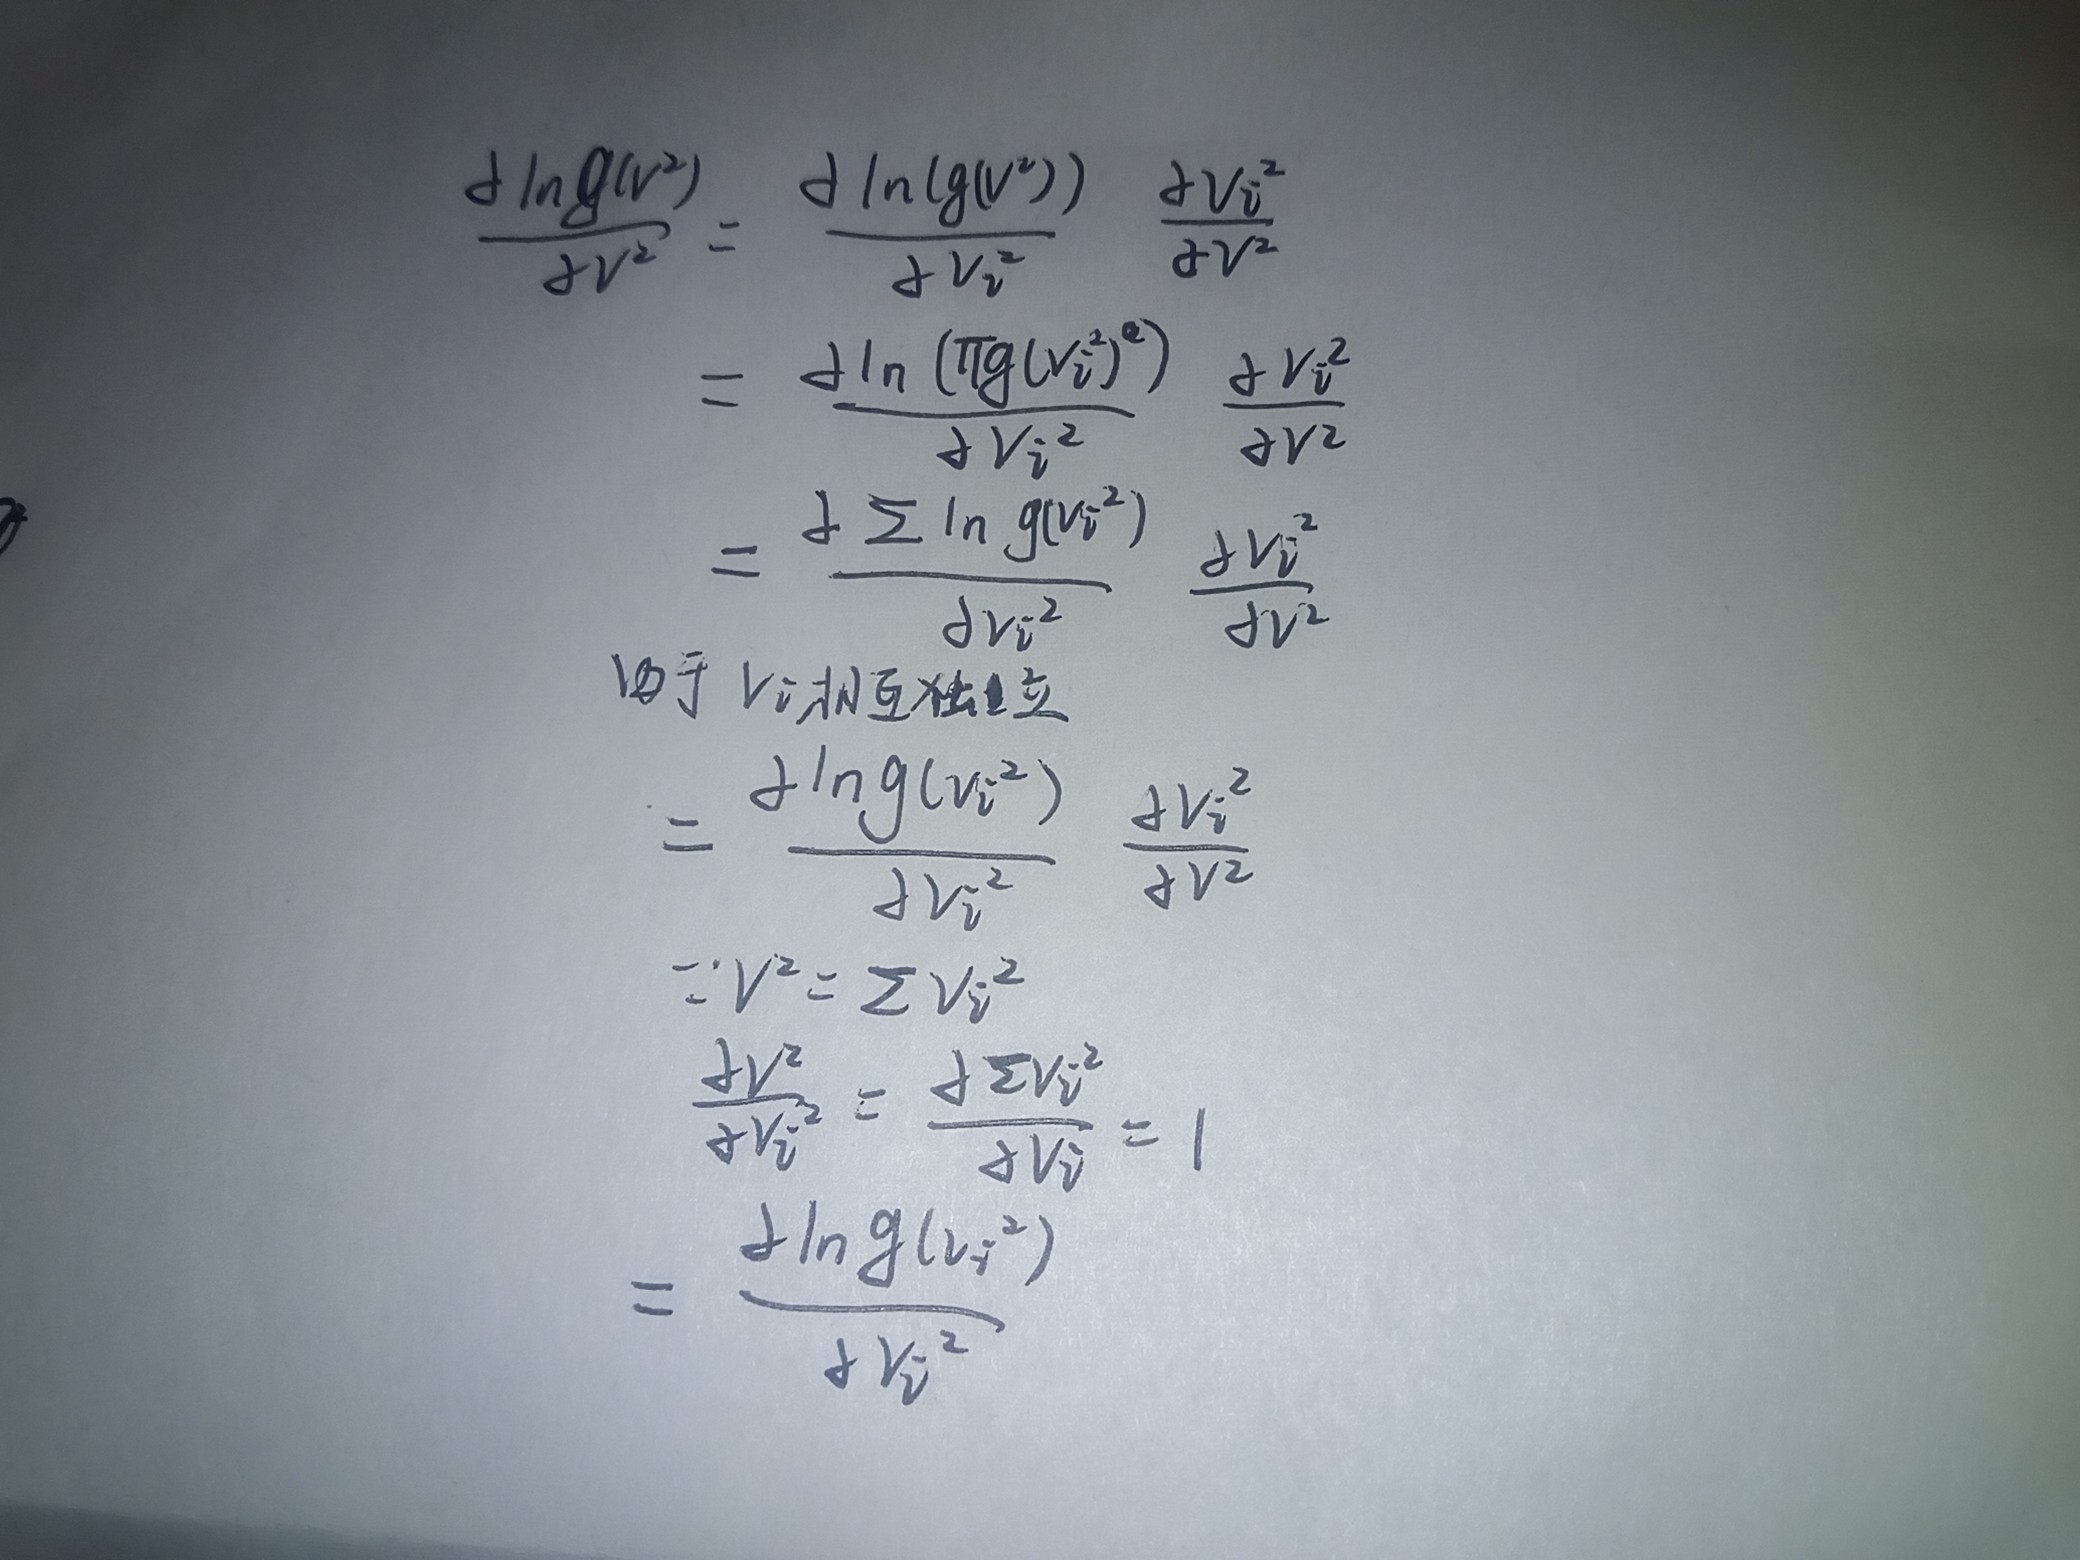 ∂ln g(v²)/∂v² = ∂ln(g(v²))/∂vᵢ² ∂vᵢ²/∂v²
= ∂ln(πg(vᵢ²))/∂vᵢ² ∂vᵢ²/∂v²
= ∂Σ ln g(vᵢ²)/∂vᵢ² ∂vᵢ²/∂v²
由于 vᵢ相互独立
= ∂ln g(vᵢ²)/∂vᵢ² ∂vᵢ²/∂v²
∵ v² = Σ vᵢ²
∂v²/∂vᵢ² = ∂Σvᵢ²/∂vᵢ = 1
= ∂ln g(vᵢ²)/∂vᵢ²